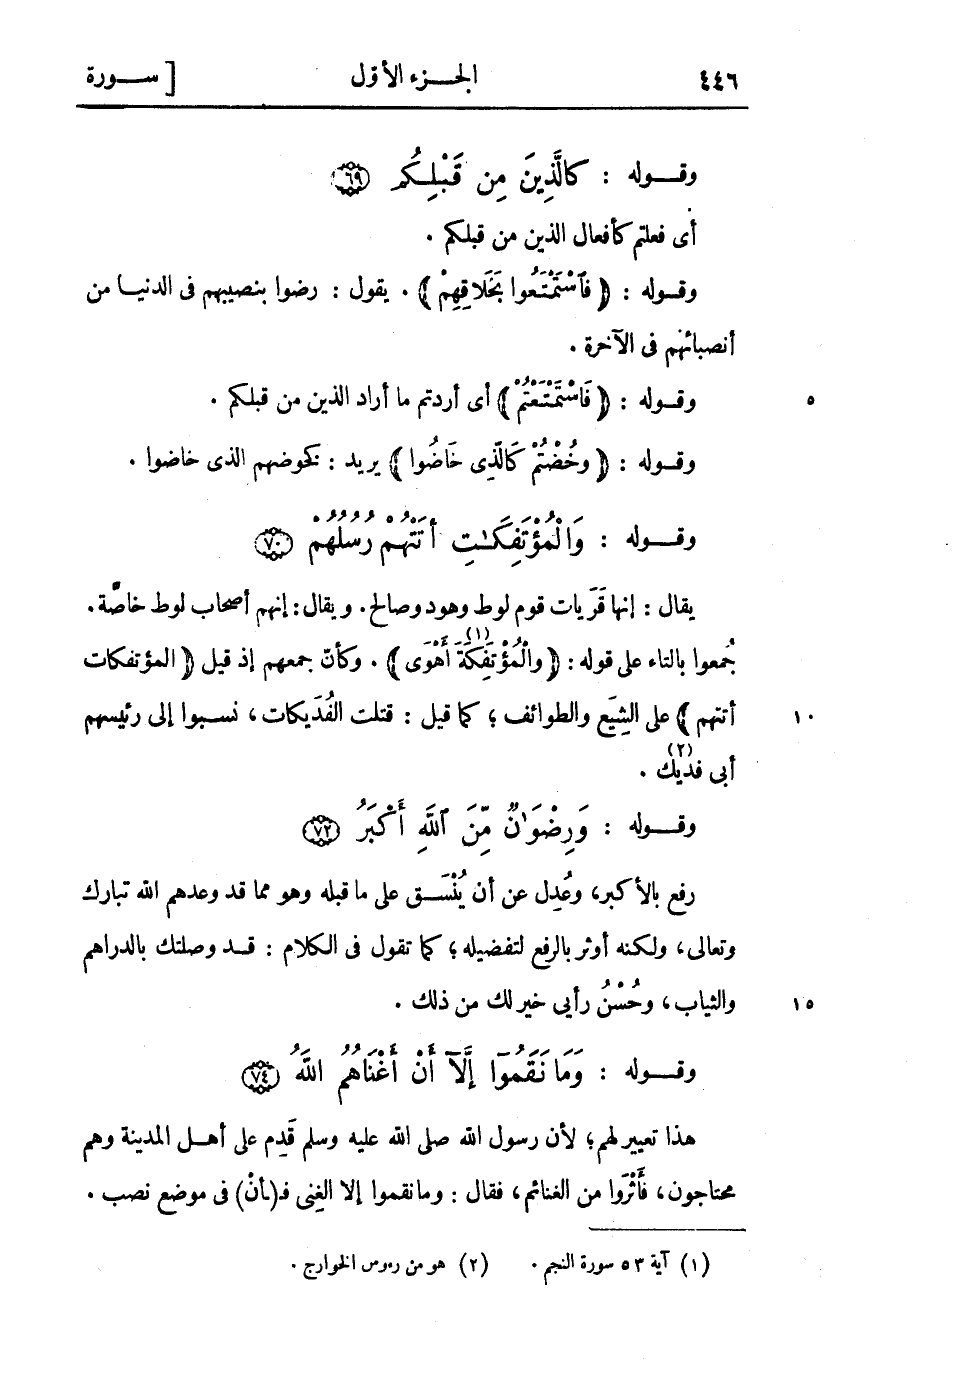 ٤٤٦ الجـزء الأول [ سـورة
وقـوله : كَالَّذِينَ مِن قَبْلِكُمْ ٦٩
أى فعلتم كأفعال الذين من قبلكم .
وقـوله : ﴿ فَٱسْتَمْتَعُوا بِخَلَاقِهِمْ ﴾ . يقول : رضوا بنصيبهم فى الدنيا من
أنصبائهم فى الآخرة .
٥ وقـوله : ﴿ فَاسْتَمْتَعْتُمْ ﴾ أى أردتم ما أراد الذين من قبلكم .
وقـوله : ﴿ وخُضْتُمْ كَالَّذِى خَاضُوا ﴾ يريد : كخوضهم الذى خاضوا .
وقـوله : وَالْمُؤْتَفِكَـٰتِ أَتَتْهُمْ رُسُلُهُمْ ٧٠
يقال : إنها قَرَيات قوم لوط وهود وصالح . ويقال : إنهم أصحاب لوط خاصّة .
جُمعوا بالتاء على قوله : ﴿ والْمُؤْتَفِكَةَ أَهْوَى ﴾ (١) . وكأنّ جمعهم إذ قيل ﴿ المؤتفكات
١٠ أتتهم ﴾ على الشِيَع والطوائف ؛ كما قيل : قتلت الفُدَيكات ، نسبوا إلى رئيسهم
أبى فديك (٢) .
وقـوله : وَرِضْوَٰنٌ مِّنَ ٱللَّهِ أَكْبَرُ ٧٢
رفع بالأكبر ، وعُدِل عن أن يُنْسَـق على ما قبله وهو مما قد وعدهم الله تبارك
وتعالى ، ولكنه أوثر بالرفع لتفضيله ؛ كما تقول فى الكلام : قـد وصلتك بالدراهم
١٥ والثياب ، وحُسْنُ رأيى خير لك من ذلك .
وقـوله : وَمَا نَقَمُوٓا إِلَّآ أَنْ أَغْنَاهُمُ اللَّهُ ٧٤
هذا تعيير لهم ؛ لأن رسول الله صلى الله عليه وسلم قَدِم على أهـل المدينة وهم
محتاجون ، فأَثْرَوا من الغنائم ، فقال : وما نقموا إلا الغِنى فـ(ـأنْ) فى موضع نصب .
(١) آية ٥٣ سورة النجم . (٢) هو من رءوس الخوارج .